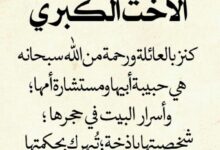 الأخت الكبري
كنز بالعائلة ورحمة من الله سبحانه
هي حبيبة أبيها ومستشارة أمها؛
وأسرار البيت في حجرها ؛
شخصيتها باذخة؛ تُبهرك بحكمتها